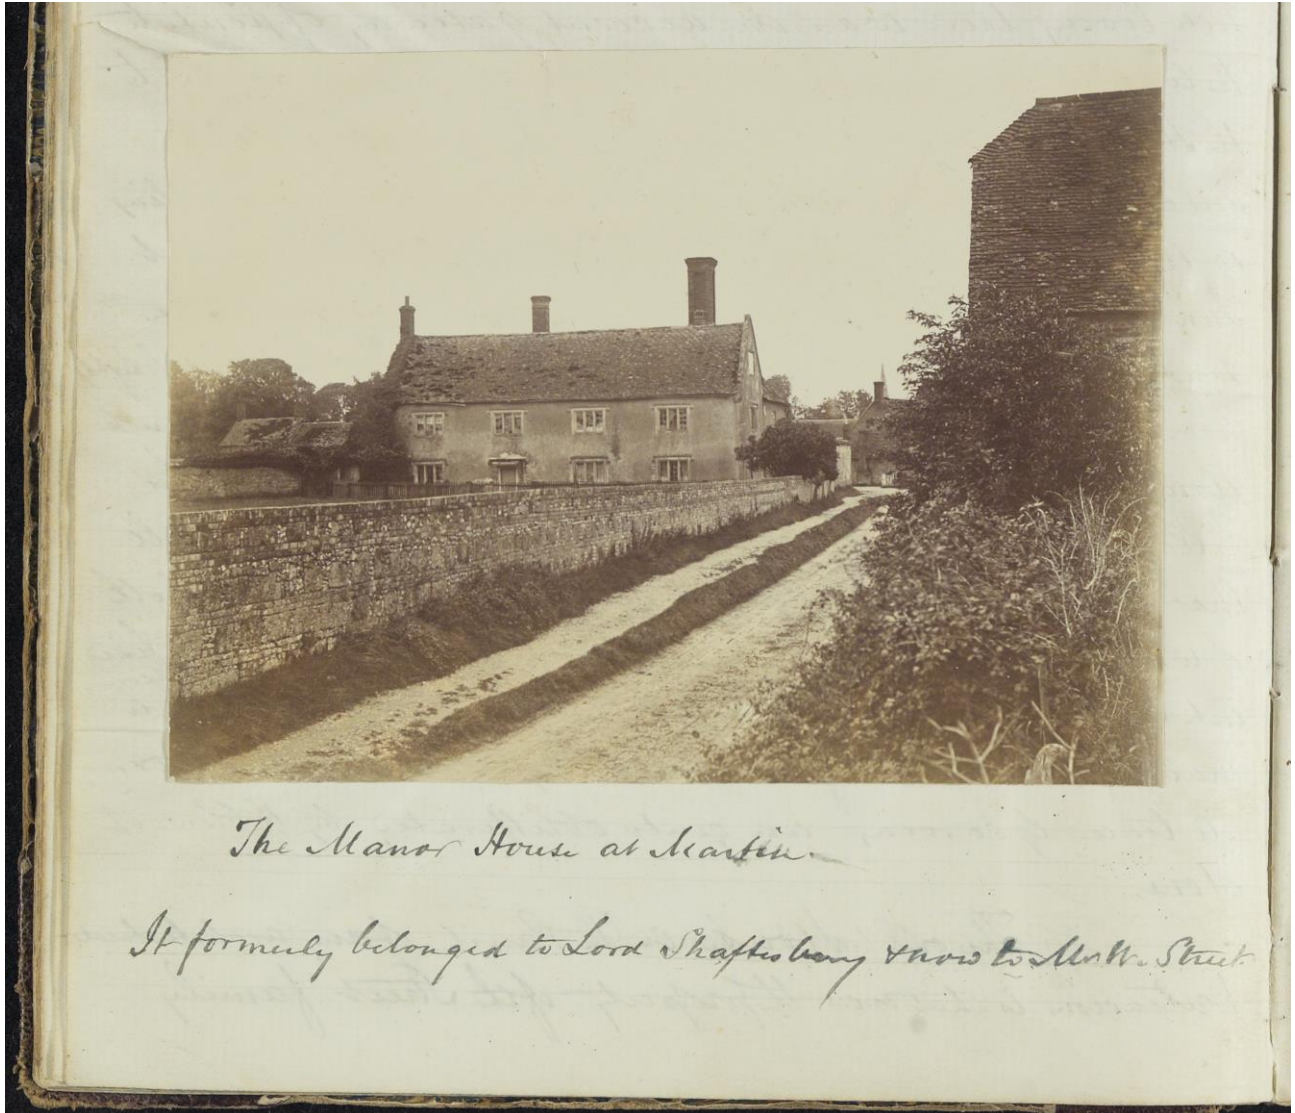 The Manor House at Martin.
It formerly belonged to Lord Shaftesbury & now to Mr W. Street